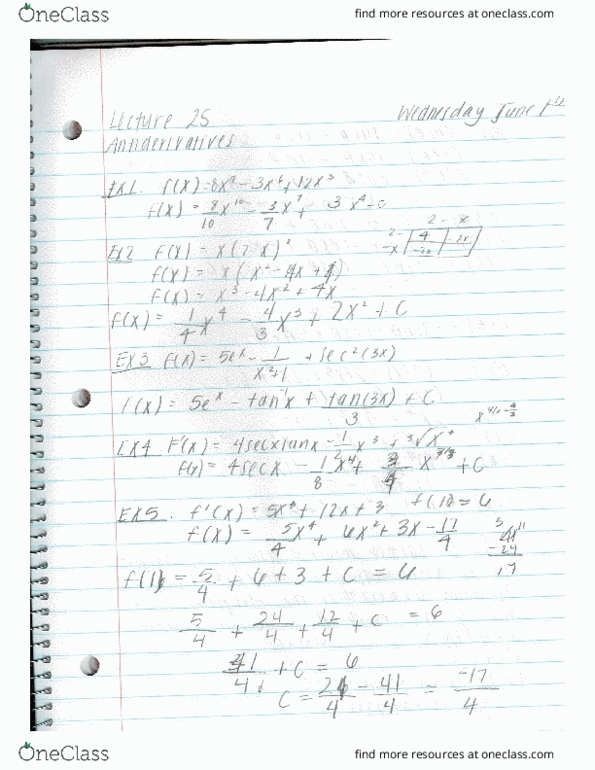 OneClass
find more resources at oneclass.com
Lecture 25
Wednesday June 1st
Antiderivatives
Ex1. f(x) = 8x⁹ - 3x⁶ + 12x³
f(x) = 8/10 x¹⁰ - 3/7 x⁷ + 3x⁴ + C
2 - x
2 4 -2x
-x -2x
Ex2 f(x) = x(2-x)²
f(x) = x(x² - 4x + 4)
f(x) = x³ - 4x² + 4x
f(x) = 1/4 x⁴ - 4/3 x³ + 2x² + C
EX3 f(x) = 5eˣ - 1/x²+1 + sec²(3x)
f(x) = 5eˣ - tan⁻¹x + tan(3x)/3 + C
EX4 F'(x) = 4secxtanx - 1/2 x³ + ³√x⁴
f(x) = 4secx - 1/8 x⁴ + x^7/3 + C
EX5. f'(x) = 5x³ + 12x + 3 f(1) = 6
f(x) = 5x⁴/4 + 6x² + 3x - 17/4
f(1) = 5/4 + 6 + 3 + C = 6
5/4 + 24/4 + 12/4 + C = 6
41/4 + C = 6
C = 24/4 - 41/4 = -17/4
41
-24
17
OneClass
find more resources at oneclass.com